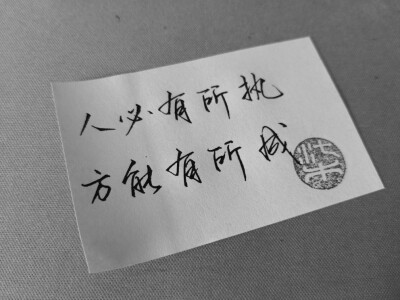 人必有所执
方能有所成